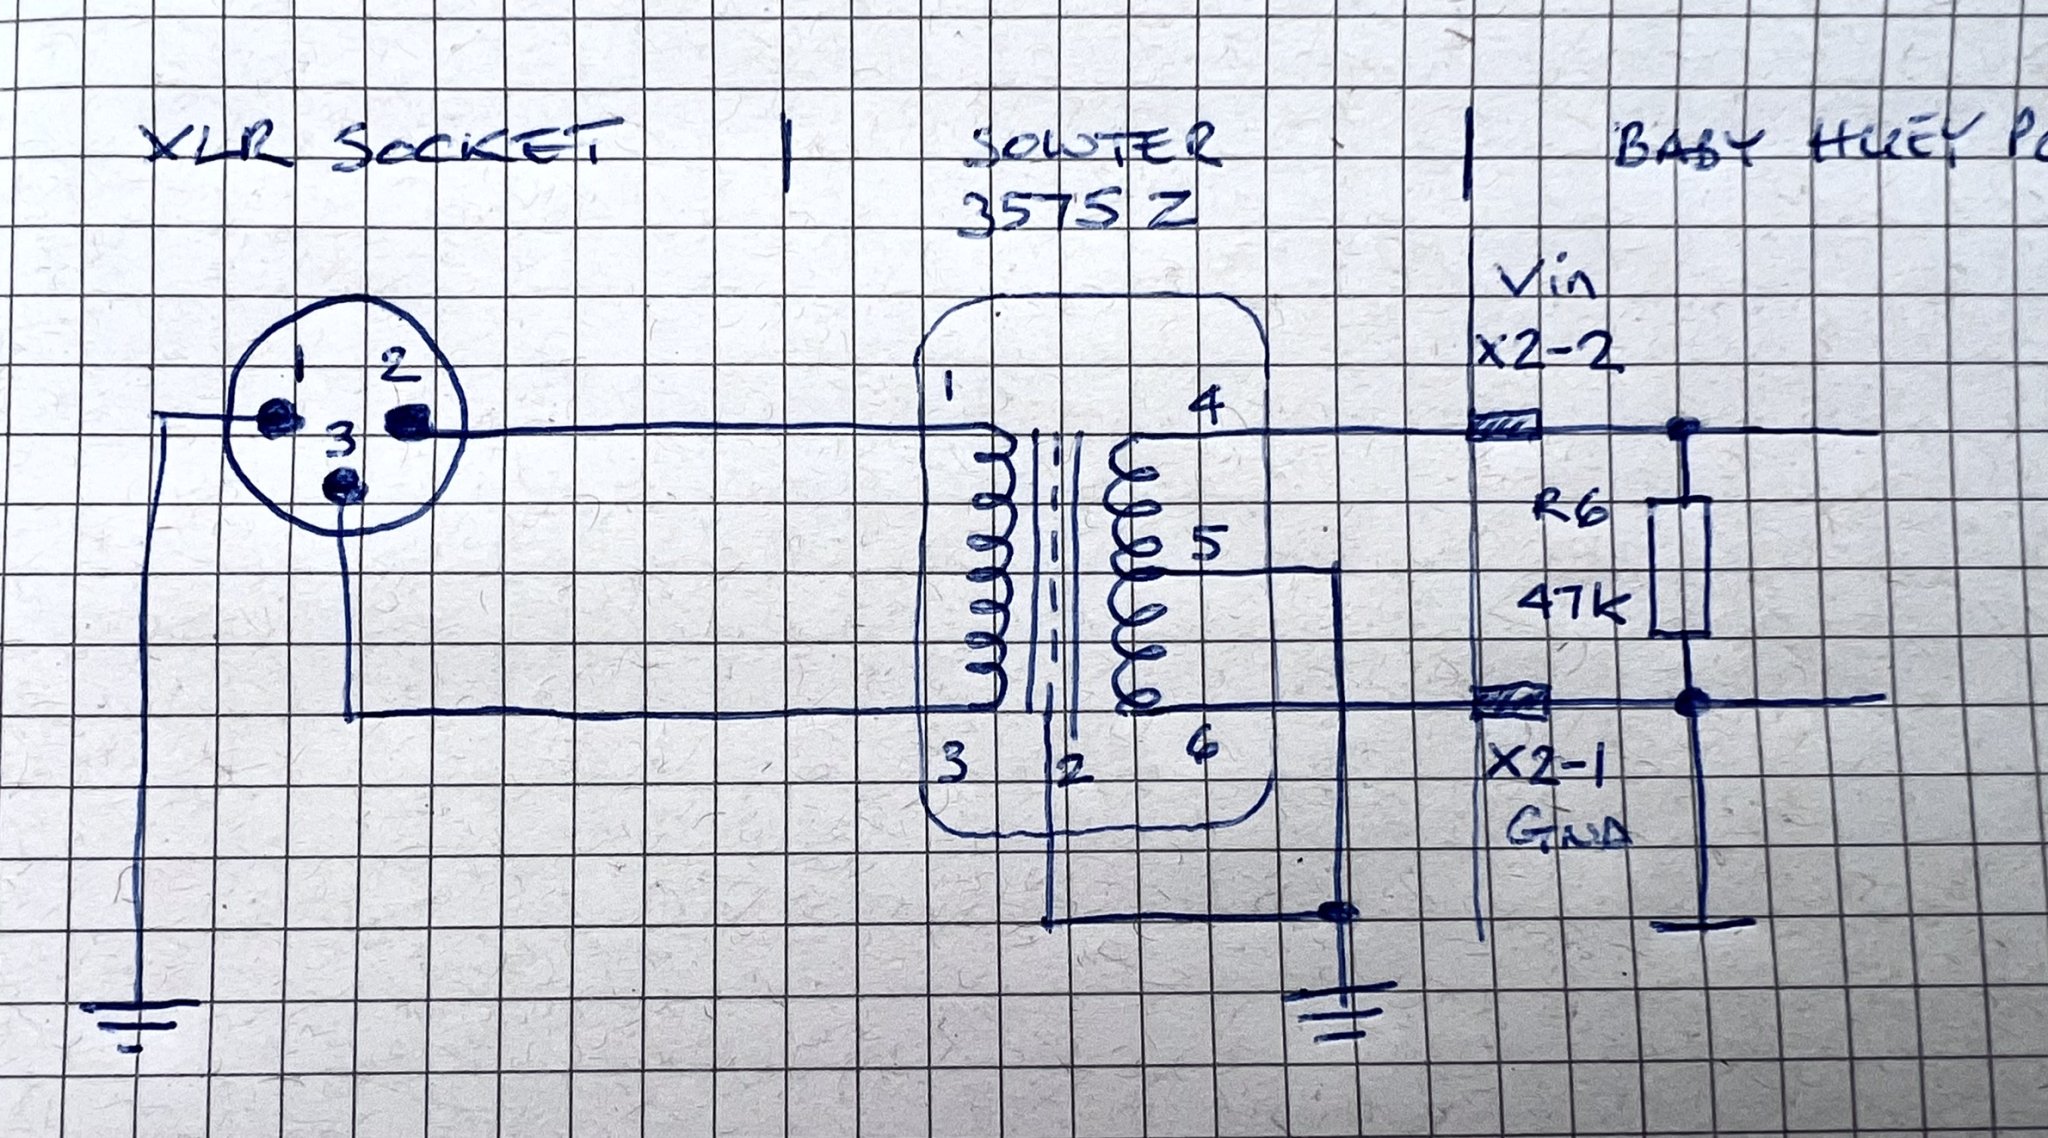 XLR SOCKET | SOWTER | BABY HUEY PC
3575 Z
Vin
X2-2
1 2
3
1
4
5
R6
47K
3
2
6
X2-1
GND